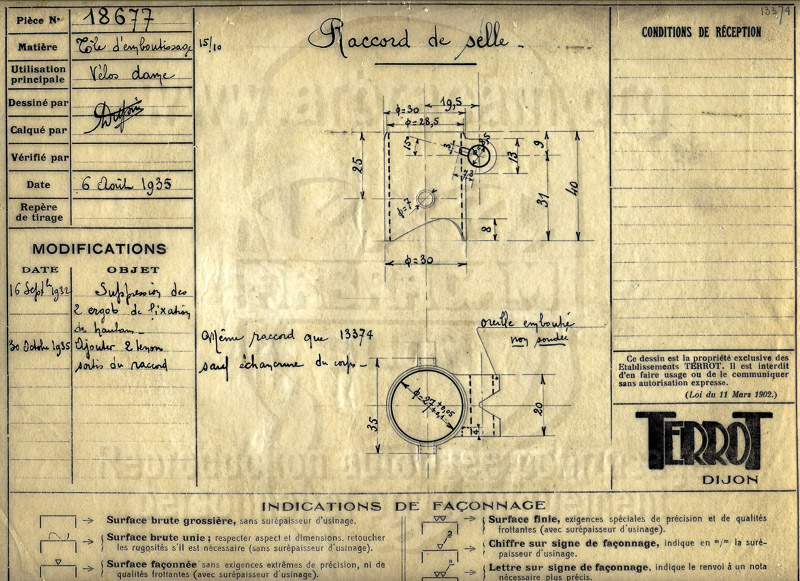 Pièce N° 18677
Matière Tôle d'emboutissage 15/10
Utilisation principale Vélos dame
Dessiné par
Calqué par
Vérifié par
Date 6 Août 1935
Repère de tirage
MODIFICATIONS
DATE OBJET
16 Septbre Suppression des
2 ergots de fixation
de hauban
30 Octobre 1935 Ajouter 2 tenons
sortis du raccord
Raccord de selle
19,5
φ=30
φ=28,5
15°
25
φ=7
13
9
31
40
8
φ=30
Même raccord que 13374
sauf échancrure du corps
oreille emboutie
non soudée
35
φ=27+0,05
+0,1
4
20
13374
CONDITIONS DE RÉCEPTION
Ce dessin est la propriété exclusive des
Etablissements TERROT. Il est interdit
d'en faire usage ou de le communiquer
sans autorisation expresse.
(Loi du 11 Mars 1902.)
TERROT
DIJON
INDICATIONS DE FAÇONNAGE
Surface brute grossière, sans surépaisseur d'usinage.
Surface brute unie ; respecter aspect et dimensions, retoucher
les rugosités s'il est nécessaire (sans surépaisseur d'usinage).
Surface façonnée sans exigences extrêmes de précision, ni de
qualités frottantes (avec surépaisseur d'usinage).
Surface finie, exigences spéciales de précision et de qualités
frottantes (avec surépaisseur d'usinage).
Chiffre sur signe de façonnage, indique en m/m la suré-
paisseur d'usinage.
Lettre sur signe de façonnage, indique le renvoi à un nota
nécessaire plus précis.